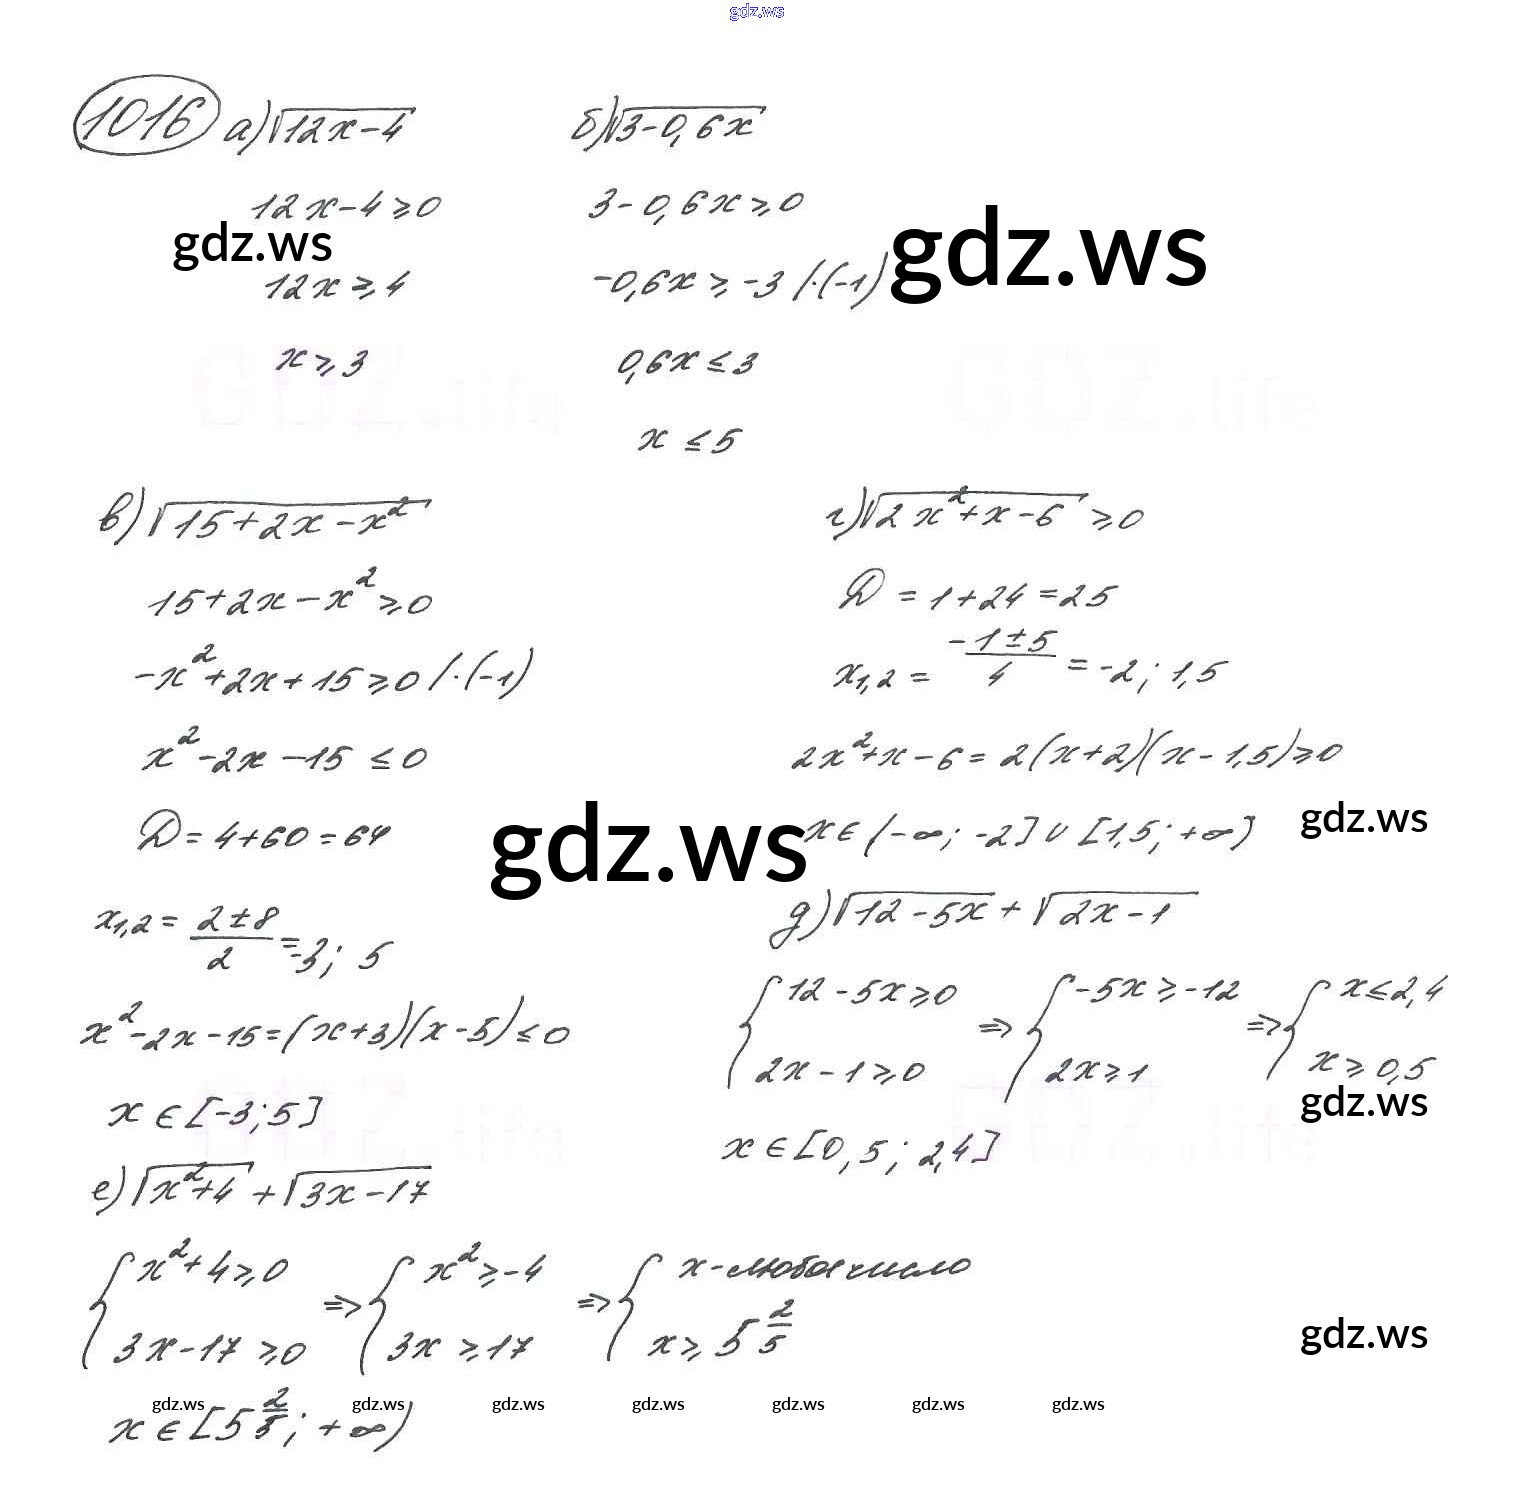 gdz.ws
1016 а) √(12x-4)
12x-4⩾0
12x⩾4
x⩾3
б) √(3-0,6x)
3-0,6x⩾0
-0,6x⩾-3 /·(-1)
0,6x≤3
x≤5
gdz.ws
gdz.ws
GDZ.life
GDZ.life
в) √(15+2x-x²)
15+2x-x²⩾0
-x²+2x+15⩾0 /·(-1)
x²-2x-15≤0
D=4+60=64
x₁,₂=(2±8)/2=-3; 5
x²-2x-15=(x+3)(x-5)≤0
x∈[-3;5]
г) √(2x²+x-6) ⩾0
D=1+24=25
x₁,₂=(-1±5)/4=-2; 1,5
2x²+x-6=2(x+2)(x-1,5)⩾0
x∈(-∞; -2]∪[1,5; +∞)
gdz.ws
gdz.ws
д) √(12-5x)+√(2x-1)
{12-5x⩾0 => {-5x⩾-12 => {x≤2,4
{2x-1⩾0 {2x⩾1 {x⩾0,5
gdz.ws
x∈[0,5; 2,4]
GDZ.life
GDZ.life
е) √(x²+4)+√(3x-17)
{x²+4⩾0 => {x²⩾-4 => {x-любое число
{3x-17⩾0 {3x⩾17 {x⩾5 2/5
gdz.ws
gdz.ws gdz.ws gdz.ws gdz.ws gdz.ws gdz.ws gdz.ws
x∈[5 2/3; +∞)